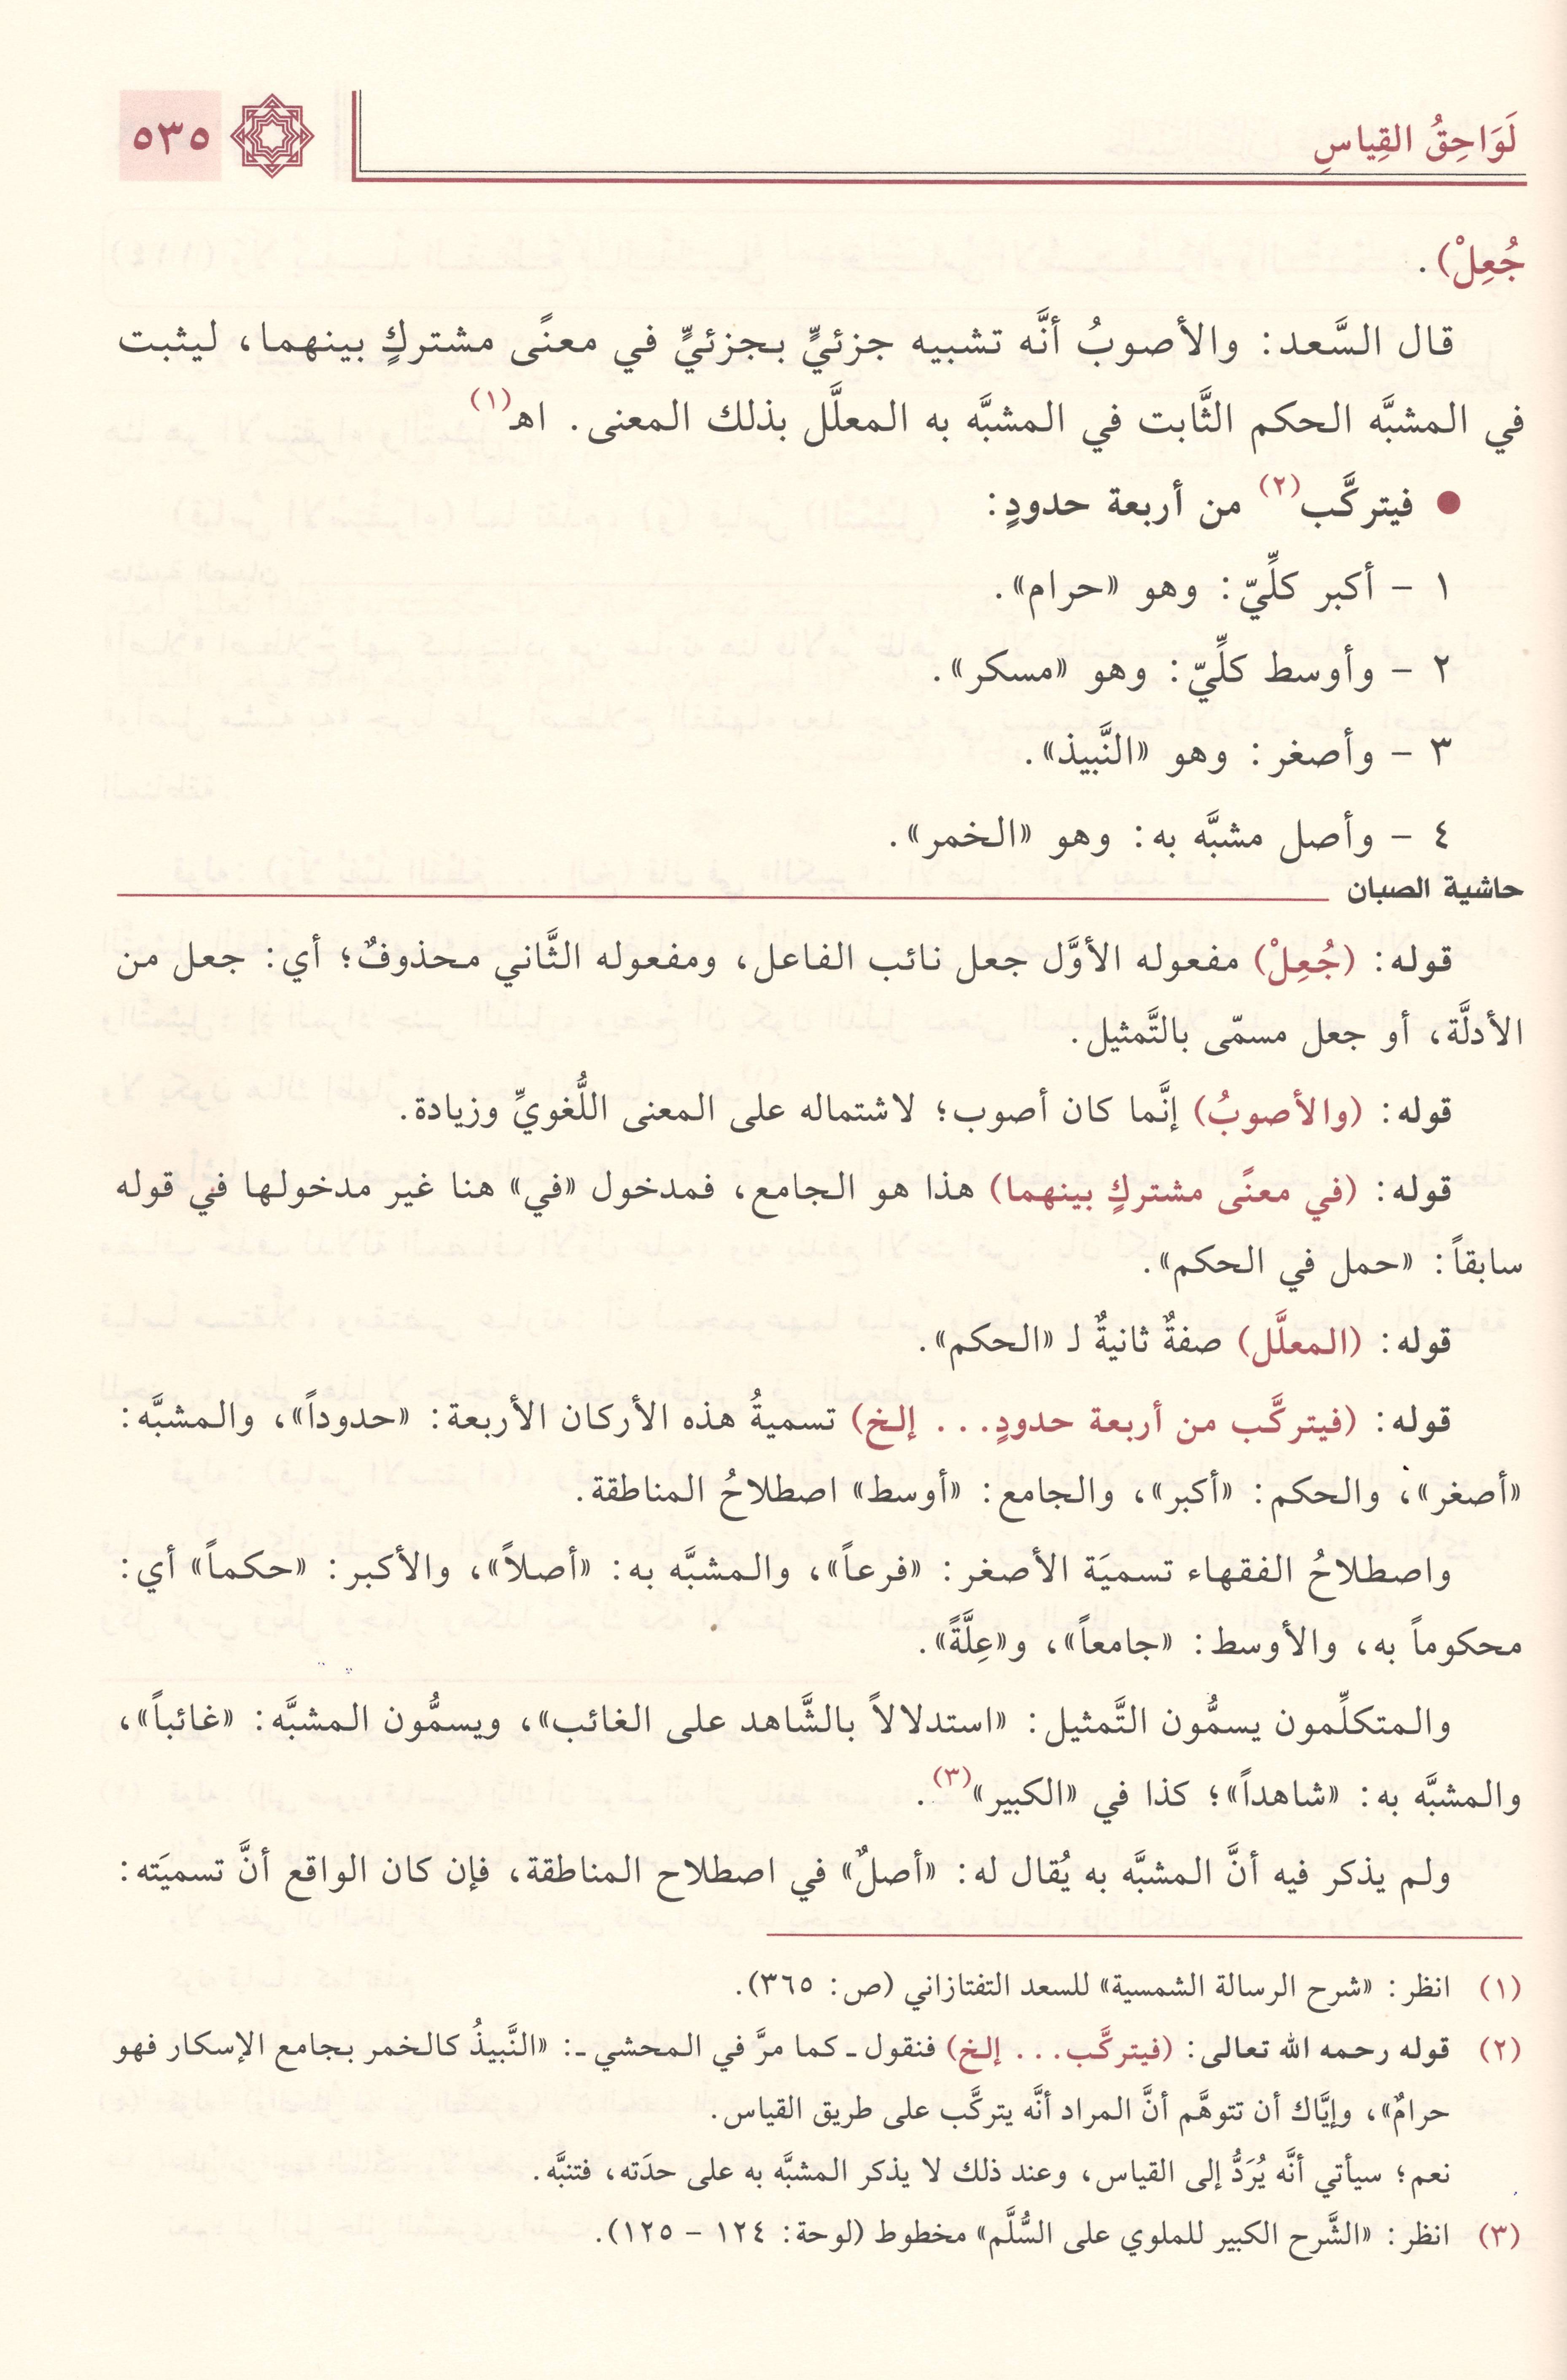 لَوَاحِقُ القِياسِ
٥٣٥
جُعِلْ).
قال السَّعد: والأصوبُ أنَّه تشبيه جزئيٍّ بجزئيٍّ في معنًى مشتركٍ بينهما، ليثبت
في المشبَّه الحكم الثَّابت في المشبَّه به المعلَّل بذلك المعنى. اهـ(١)
● فيتركَّب(٢) من أربعة حدودٍ:
١ - أكبر كلِّيّ: وهو «حرام».
٢ - وأوسط كلِّيّ: وهو «مسكر».
٣ - وأصغر: وهو «النَّبيذ».
٤ - وأصل مشبَّه به: وهو «الخمر».
حاشية الصبان
قوله: (جُعِلْ) مفعوله الأوَّل جعل نائب الفاعل، ومفعوله الثَّاني محذوفٌ؛ أي: جعل من
الأدلَّة، أو جعل مسمّى بالتَّمثيل.
قوله: (والأصوبُ) إنَّما كان أصوب؛ لاشتماله على المعنى اللُّغويِّ وزيادة.
قوله: (في معنًى مشتركٍ بينهما) هذا هو الجامع، فمدخول «في» هنا غير مدخولها في قوله
سابقاً: «حمل في الحكم».
قوله: (المعلَّل) صفةٌ ثانيةٌ لـ «الحكم».
قوله: (فيتركَّب من أربعة حدودٍ... إلخ) تسميةُ هذه الأركان الأربعة: «حدوداً»، والمشبَّه:
«أصغر»، والحكم: «أكبر»، والجامع: «أوسط» اصطلاحُ المناطقة.
واصطلاحُ الفقهاء تسميَة الأصغر: «فرعاً»، والمشبَّه به: «أصلاً»، والأكبر: «حكماً» أي:
محكوماً به، والأوسط: «جامعاً»، و«عِلَّةً».
والمتكلِّمون يسمُّون التَّمثيل: «استدلالاً بالشَّاهد على الغائب»، ويسمُّون المشبَّه: «غائباً»،
والمشبَّه به: «شاهداً»؛ كذا في «الكبير»(٣).
ولم يذكر فيه أنَّ المشبَّه به يُقال له: «أصلٌ» في اصطلاح المناطقة، فإن كان الواقع أنَّ تسميَته:
(١) انظر: «شرح الرسالة الشمسية» للسعد التفتازاني (ص: ٣٦٥).
(٢) قوله رحمه الله تعالى: (فيتركَّب... إلخ) فنقول ـ كما مرَّ في المحشي ـ: «النَّبيذُ كالخمر بجامع الإسكار فهو
حرامٌ»، وإيَّاك أن تتوهَّم أنَّ المراد أنَّه يتركَّب على طريق القياس.
نعم؛ سيأتي أنَّه يُرَدُّ إلى القياس، وعند ذلك لا يذكر المشبَّه به على حدَته، فتنبَّه.
(٣) انظر: «الشَّرح الكبير للملوي على السُّلَّم» مخطوط (لوحة: ١٢٤ - ١٢٥).